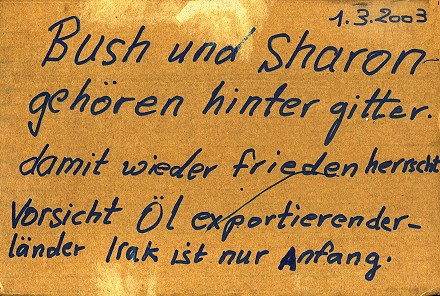 1.3.2003
Bush und Sharon-
gehören hinter gitter.
damit wieder frieden herrscht
Vorsicht Öl exportierender-
länder Irak ist nur Anfang.